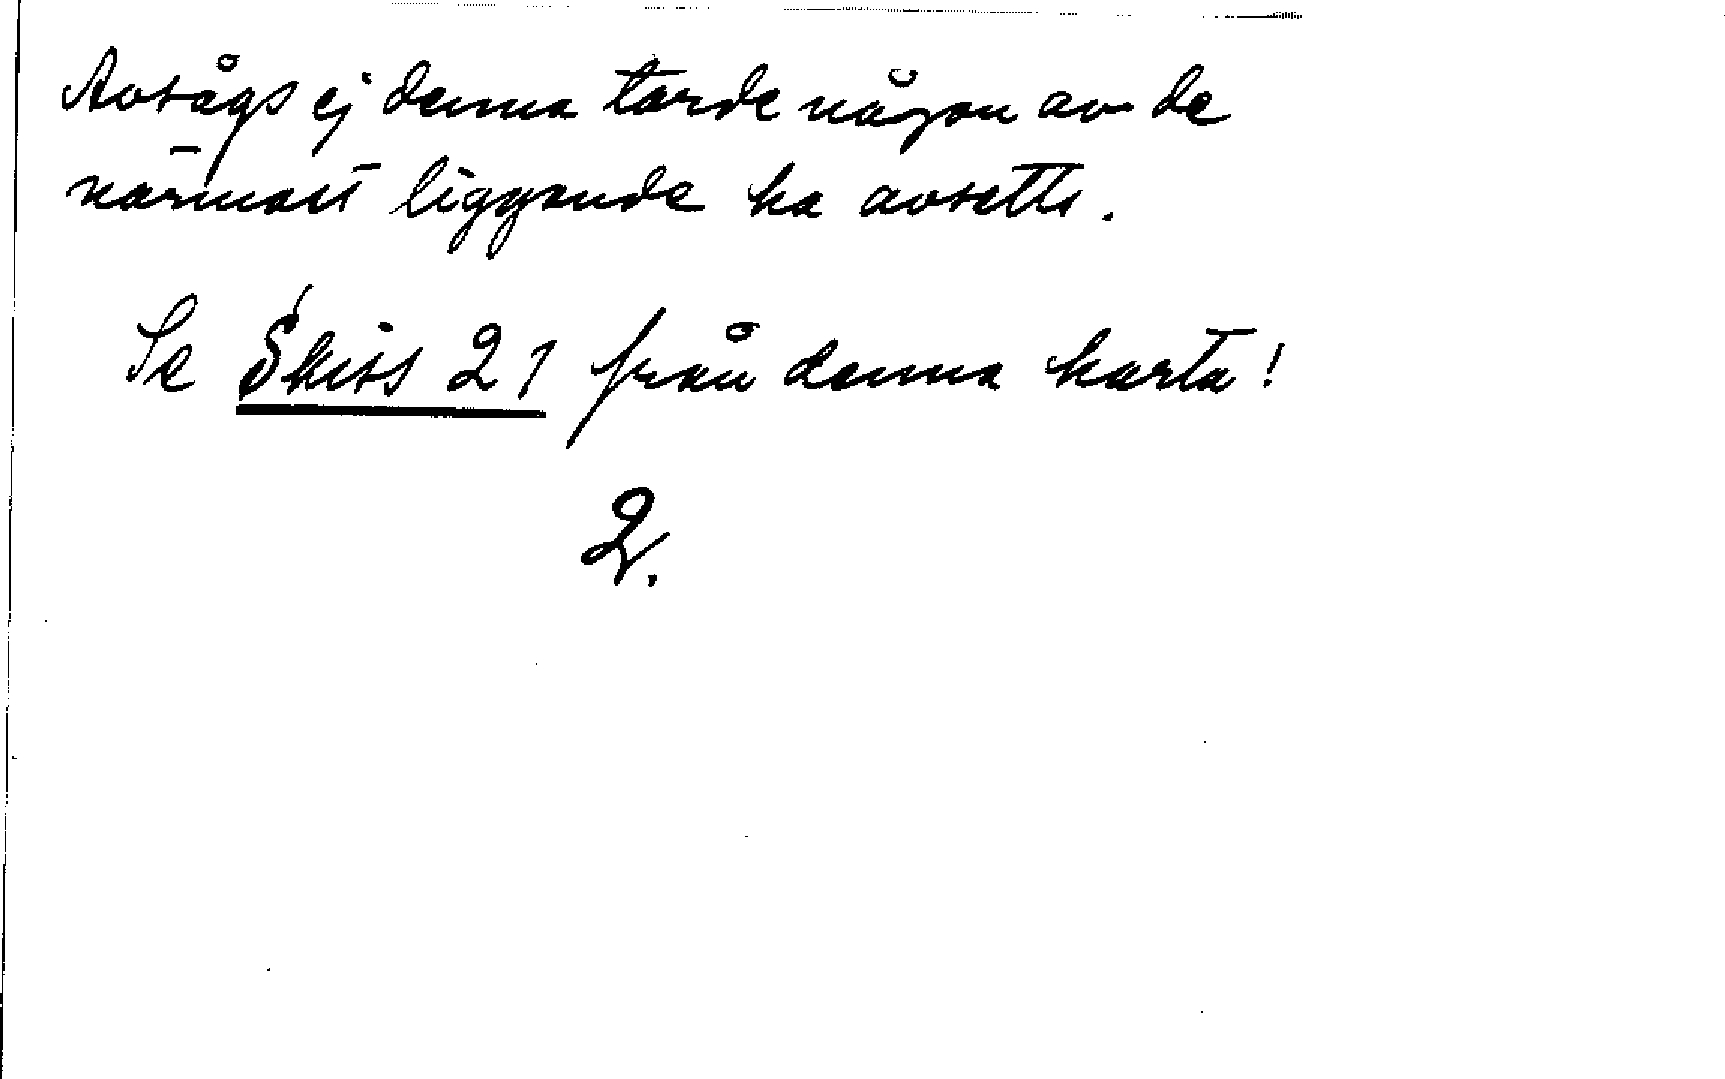 Avsågs ej denna torde någon av de
närmast liggande ha avsetts.
Se Skiss 21 från denna karta!
2.